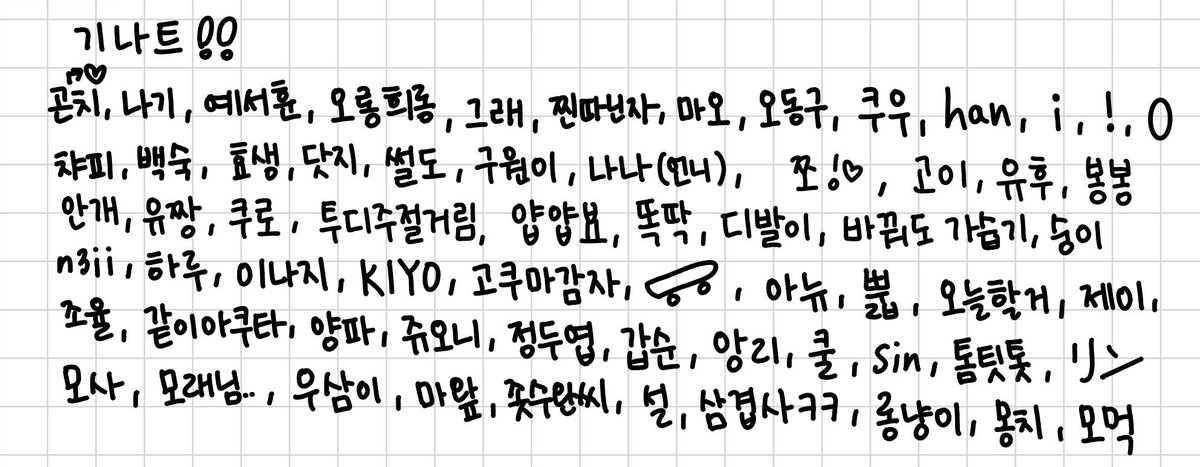 기나트!!
곤치, 나기, 예서훈, 오롱희롱, 그래, 찐따닌자, 마오, 오동구, 쿠우, han, i, !, 0
챠피, 백숙, 효생, 닷지, 썰도, 구원이, 나나(언니), 쪼!♡, 고이, 유후, 봉봉
안개, 유짱, 쿠로, 투디주절거림, 얍얍뵤, 똑딱, 디발이, 바뀌도 가습기, 숭이
n3ii, 하루, 이나지, KIYO, 고쿠마감자, , 아뉴, 뿗, 오늘할거, 제이,
조율, 같이아쿠타, 양파, 쥬오니, 정두엽, 갑순, 앙리, 쿨, sin, 톰팃톳, リン
모사, 모래님.., 우삼이, 마앞, 좃수완씨, 설, 삼겹사ㅋㅋ, 롱냥이, 몽치, 모먹